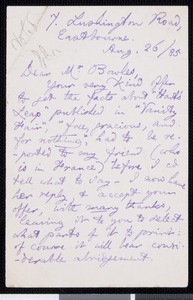 7. Lushington Road,
Eastbourne.
Aug. 26/85
Dear Mr Bowles,
Your very kind offer
to get the facts about "Hatch's
Leap, published in "Vanity
Fair," free, gracious, and
for nothing, had to be re-
ported to my friend (who
is in France) before I could
tell what to say — I now have
her reply, & accept your
offer, with many thanks,
leaving it to you to select
what parts of it to print:
of course it will bear consi-
derable abridgement.